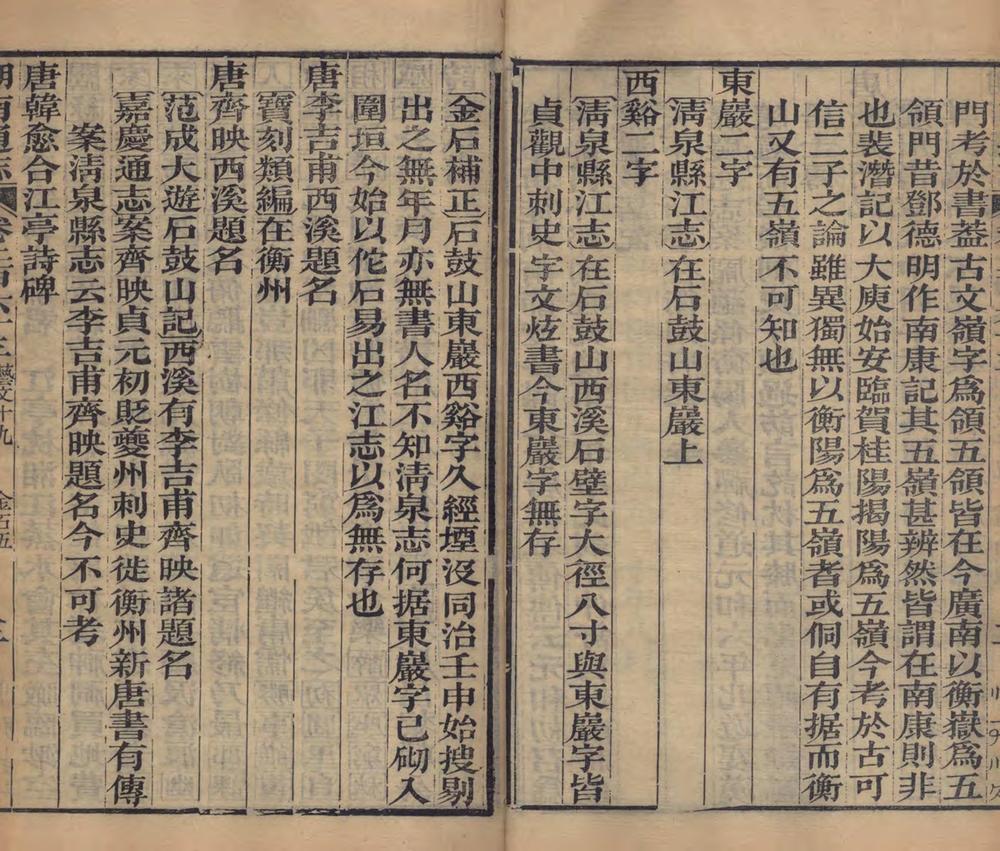 門考於書葢古文嶺字爲領五領皆在今廣南以衡嶽爲五
領門昔鄧德明作南康記其五嶺甚辨然皆謂在南康則非
也裴潛記以大庾始安臨賀桂陽揭陽爲五嶺今考於古可
信二子之論雖異獨無以衡陽爲五嶺者或侗自有据而衡
山又有五嶺不可知也
東巖二字
〔淸泉縣江志〕在石鼓山東巖上
西谿二字
〔淸泉縣江志〕在石鼓山西溪石壁字大徑八寸與東巖字皆
貞觀中刺史宇文炫書今東巖字無存
〔金石補正〕石鼓山東巖西谿字久經堙沒同治壬申始搜剔
出之無年月亦無書人名不知淸泉志何据東巖字已砌入
圍垣今始以佗石易出之江志以爲無存也
唐李吉甫西溪題名
〔寶刻類編〕在衡州
唐齊映西溪題名
〔范成大遊石鼓山記〕西溪有李吉甫齊映諸題名
〔嘉慶通志〕案齊映貞元初貶夔州刺史徙衡州新唐書有傳
案淸泉縣志云李吉甫齊映題名今不可考
唐韓愈合江亭詩碑
藝文十九 金石五